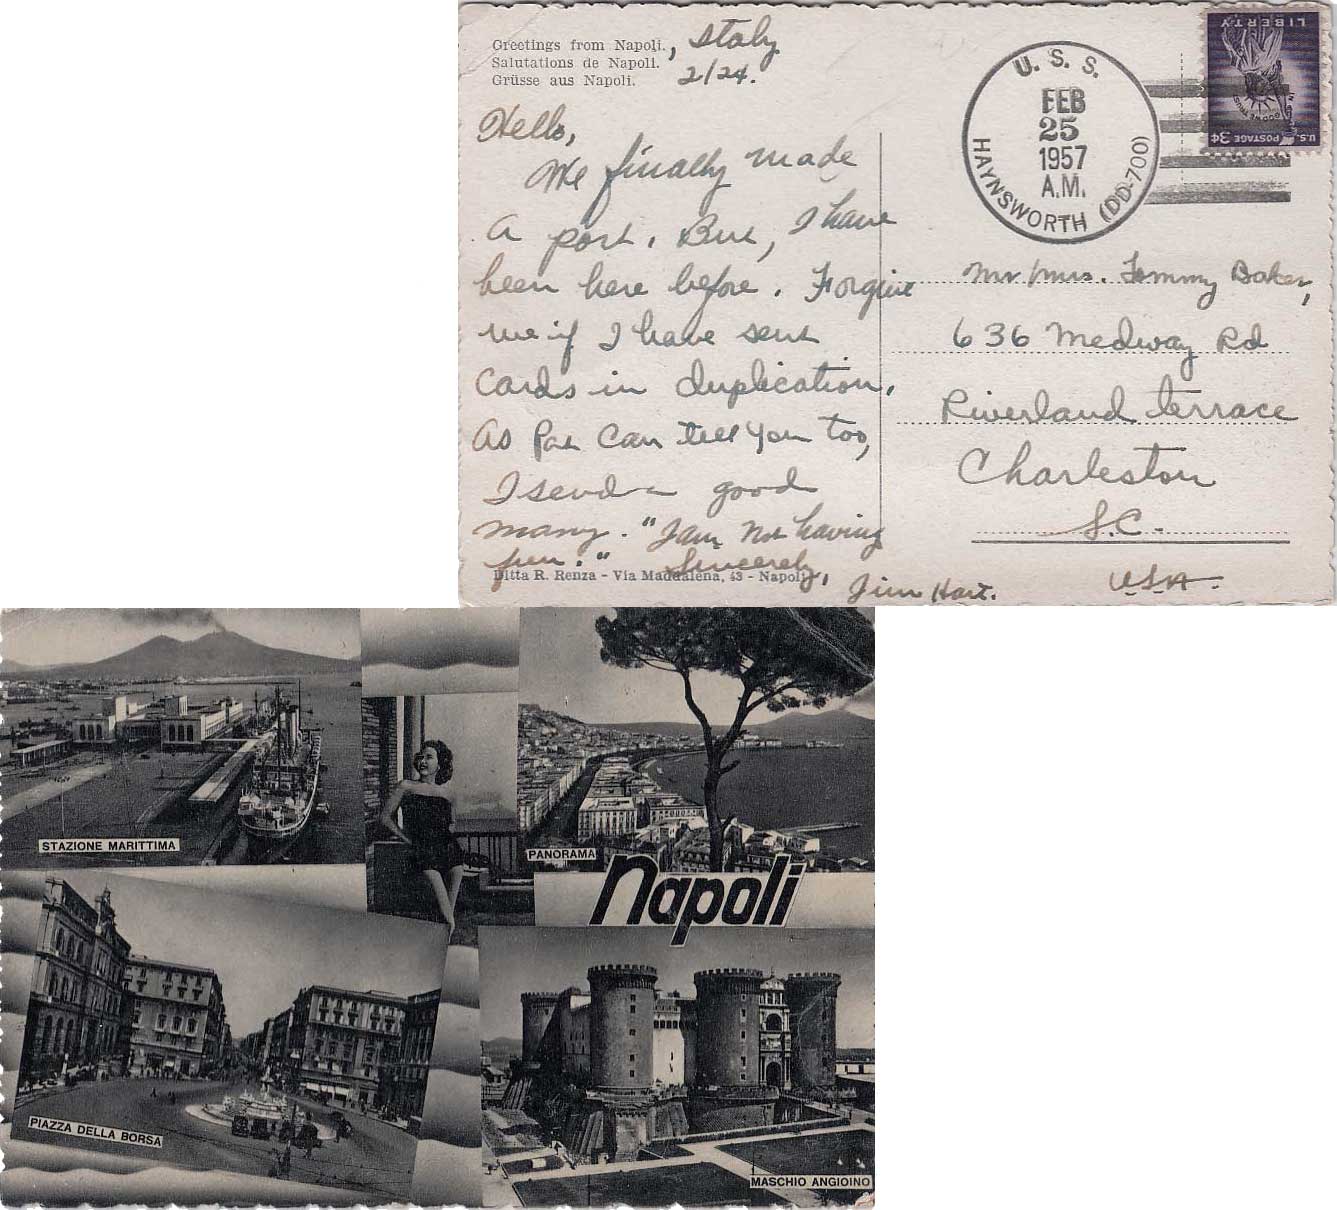 Greetings from Napoli., Italy
Salutations de Napoli. 2/24.
Grüsse aus Napoli.
Hello,
We finally made
a port. But, I have
been here before. Forgive
me if I have sent
cards in duplication.
As Pat can tell you too,
I send a good
many. "I am not having
fun." Sincerely,
Jim Hart.
Ditta R. Renza - Via Maddalena, 43 - Napoli
U. S. S.
FEB
25
1957
A.M.
HAYNSWORTH (DD-700)
U.S. POSTAGE 3¢
IN GOD WE TRUST
LIBERTY
Mr Mrs. Tommy Baker,
636 Medway Rd
Riverland terrace
Charleston
S.C.
USA
STAZIONE MARITTIMA
PANORAMA
Napoli
PIAZZA DELLA BORSA
MASCHIO ANGIOINO